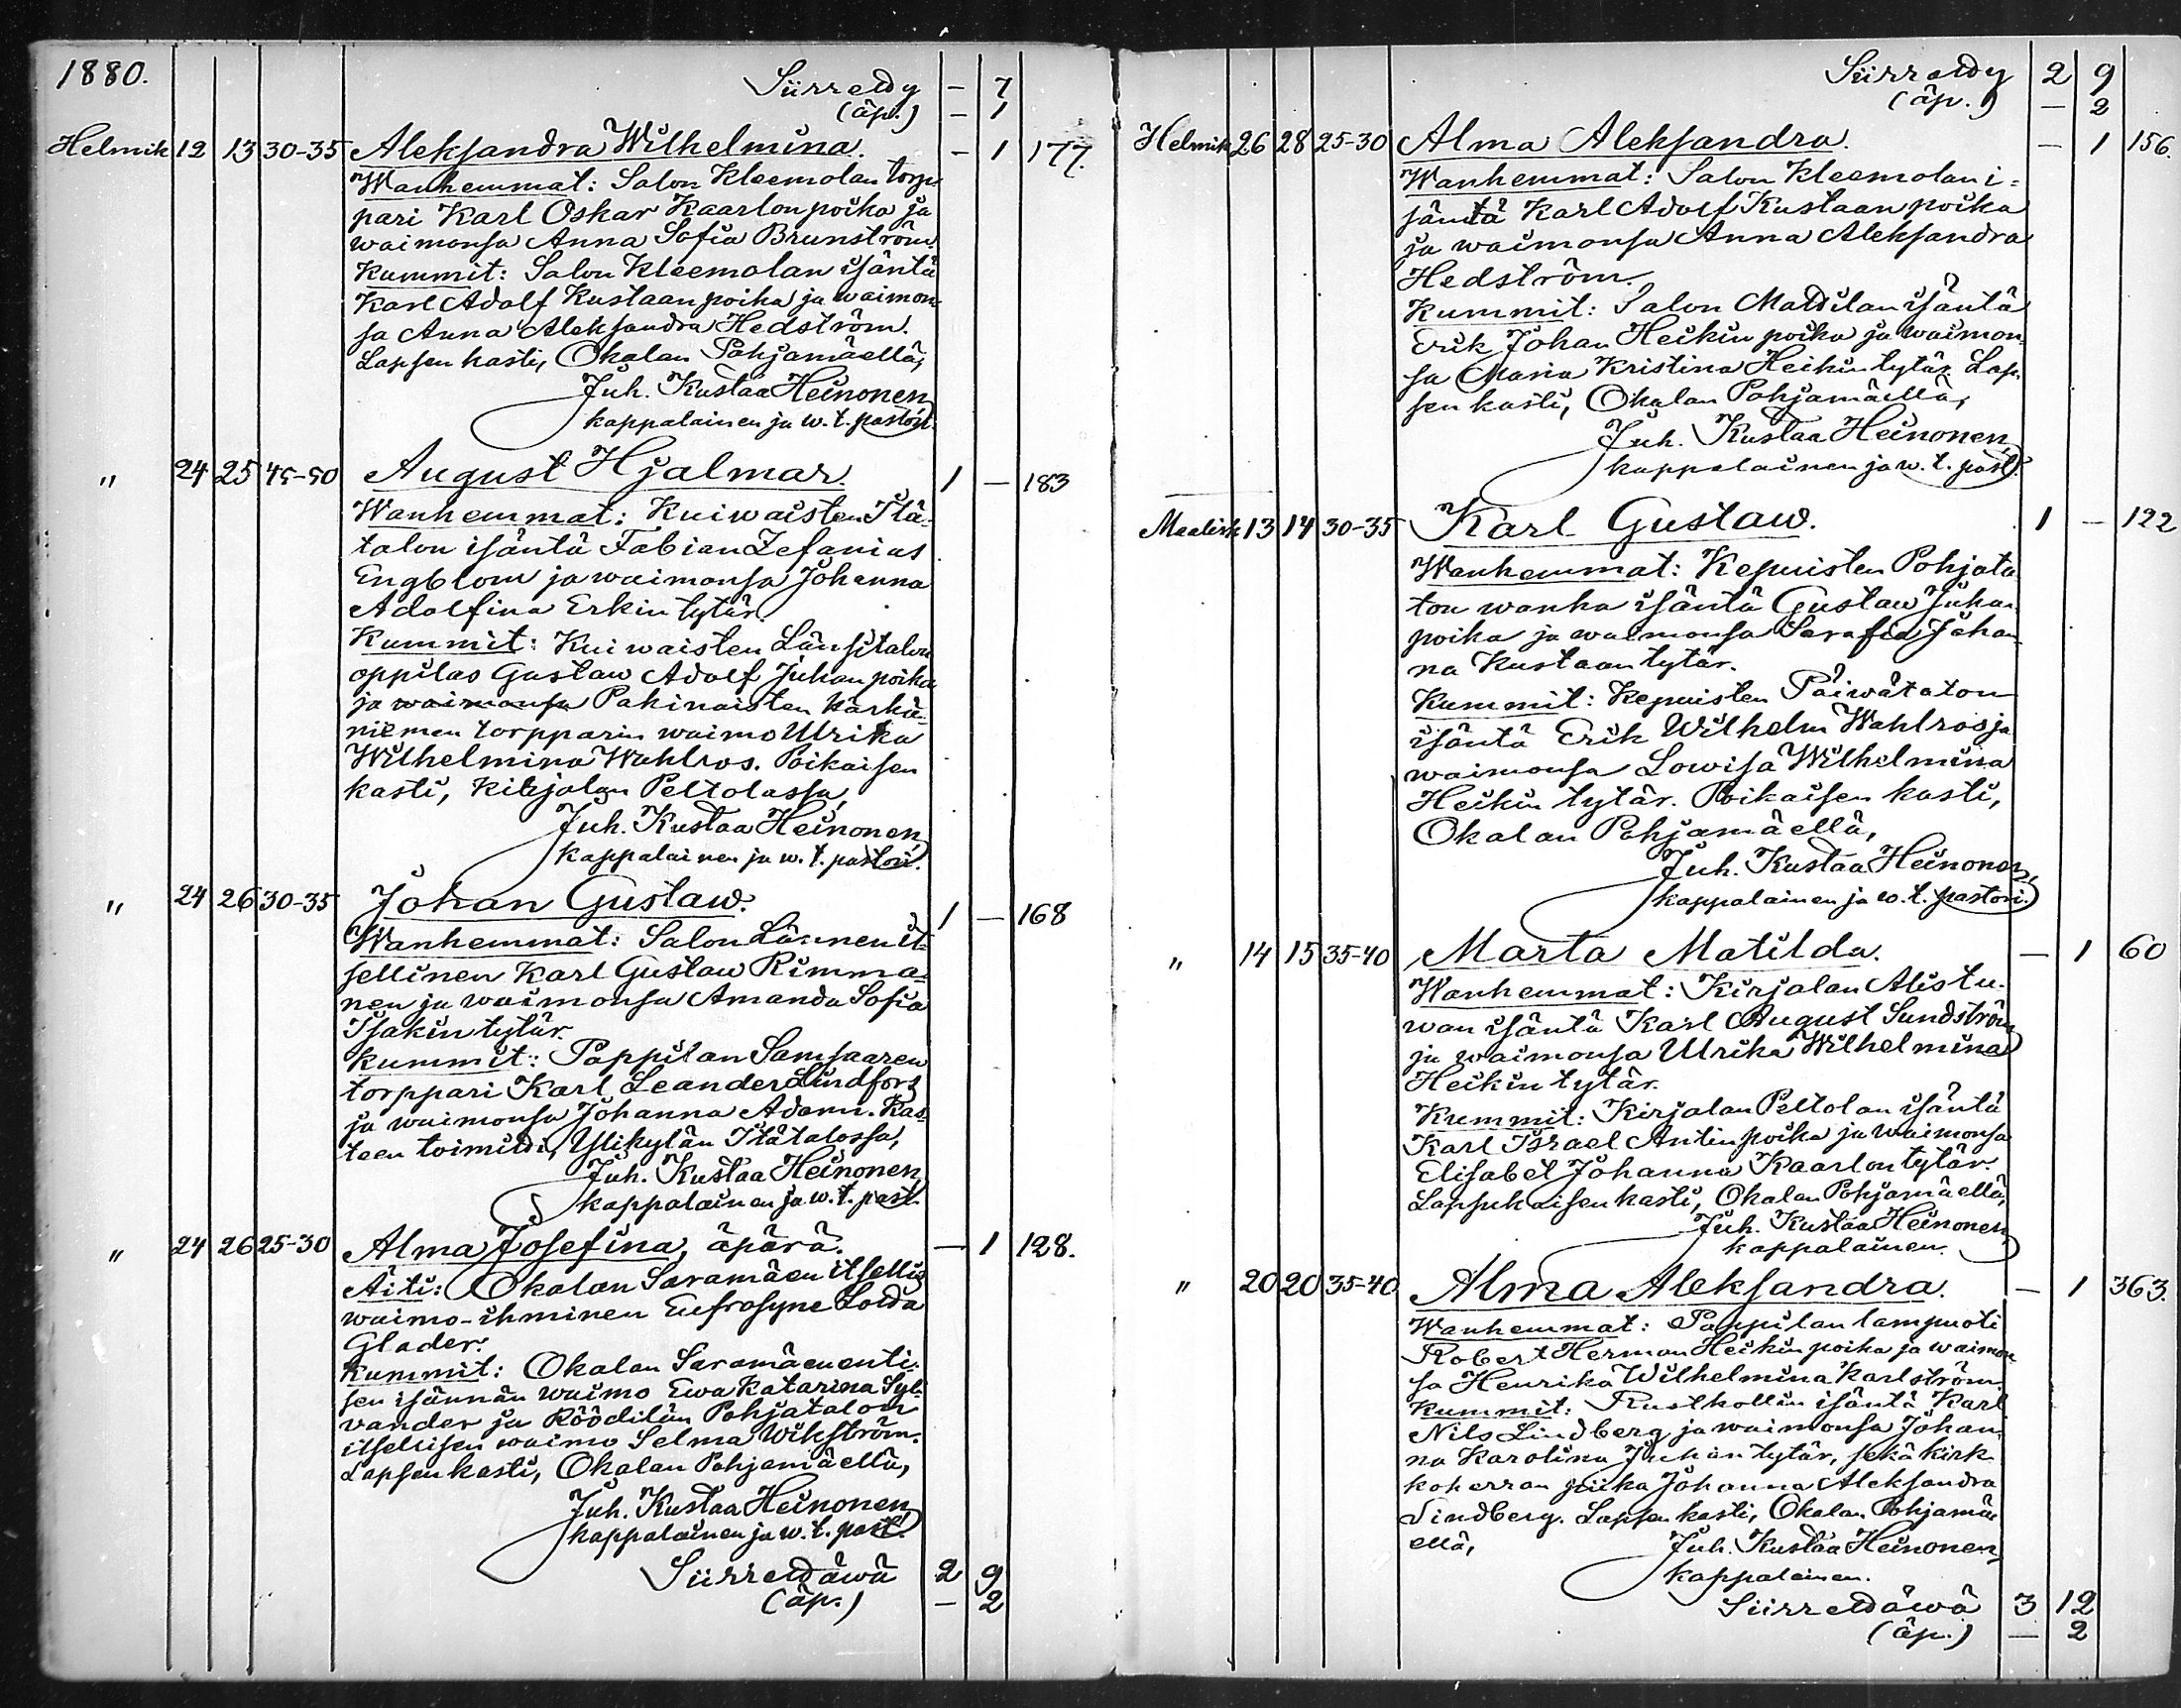 1880.
Siirretty - 7
(äp.) - 1
Helmik 12 13 30-35 Aleksandra Wilhelmina. - 1 177.
Wanhemmat: Salon Kleemolan torp-
pari Karl Oskar Kaarlonpoika ja
waimonsa Anna Sofia Brunström.
Kummit: Salon Kleemolan isäntä
Karl Adolf Kustaanpoika ja waimon-
sa Anna Aleksandra Hedström.
Lapsen kasti, Okalan Pohjamäellä,
Juh. Kustaa Heinonen,
kappalainen ja w. t. pastori.
" 24 25 45-50 August Hjalmar. 1 - 183
Wanhemmat: Kuiwaisten Itä-
talon isäntä Fabian Zefanias
Engblom ja waimonsa Johanna
Adolfina Erkin tytär.
Kummit: Kuiwaisten Länsitalon
oppilas Gustaw Adolf Juhan poika
ja waimonsa Pakinaisten Härkä-
niemen torpparin waimo Ulrika
Wilhelmina Wahlros. Poikaisen
kasti, Kirjalan Peltolassa,
Juh. Kustaa Heinonen,
kappalainen ja w. t. pastori.
" 24 26 30-35 Johan Gustaw. 1 - 168
Wanhemmat: Salon Lännen it-
sellinen Karl Gustaw Rimma-
nen ja waimonsa Amanda Sofia
Isakin tytär.
Kummit: Pappilan Samsaaren
torppari Karl Leander Lindfors
ja waimonsa Johanna Adami. Kas-
teen toimitti, Ylikylän Itätalossa,
Juh. Kustaa Heinonen,
kappalainen ja w. t. past.
" 24 26 25-30 Alma Josefina, äpärä. - 1 128.
Äiti: Okalan Saramäen itsellis
waimo-ihminen Eufrosyne Lovisa
Glader.
Kummit: Okalan Saramäen enti-
sen isännän waimo Ewa Katarina Syl-
vander ja Röödilän Pohjatalon
itsellisen waimo Selma Wikström.
Lapsen kasti, Okalan Pohjamäellä,
Juh. Kustaa Heinonen,
kappalainen ja w. t. past.
Siirrettäwä 2 9
(äp.) - 2
Siirretty 2 9
(äp.) - 2
Helmik 26 28 25-30 Alma Aleksandra. - 1 156.
Wanhemmat: Salon Kleemolan i-
säntä Karl Adolf Kustaan poika
ja waimonsa Anna Aleksandra
Hedström.
Kummit: Salon Mattilan isäntä
Erik Johan Heikin poika ja waimon-
sa Maria Kristina Heikin tytär. Lap-
sen kasti, Okalan Pohjamäellä,
Juh. Kustaa Heinonen,
kappalainen ja w. t. past.
Maalisk 13 14 30-35 Karl Gustaw. 1 - 122
Wanhemmat: Kepuisten Pohjata-
lon wanha isäntä Gustaw Juhan
poika ja waimonsa Serafia Johan-
na Kustaan tytär.
Kummit: Kepuisten Päiwätalon
isäntä Erik Wilhelm Wahlros ja
waimonsa Lowisa Wilhelmina
Heikin tytär. Poikaisen kasti,
Okalan Pohjamäellä,
Juh. Kustaa Heinonen,
kappalainen ja w. t. pastori.
" 14 15 35-40 Marta Matilda. - 1 60
Wanhemmat: Kirjalan Alistu-
wan isäntä Karl August Sundström
ja waimonsa Ulrika Wilhelmina
Heikin tytär.
Kummit: Kirjalan Peltolan isäntä
Karl Israel Antin poika ja waimonsa
Elisabet Johanna Kaarlon tytär.
Lapsukaisen kasti, Okalan Pohjamäellä,
Juh. Kustaa Heinonen,
kappalainen.
" 20 20 35-40 Alma Aleksandra. - 1 363.
Wanhemmat: Pappilan lampuoti
Robert Herman Heikin poika ja waimon-
sa Henrika Wilhelmina Karlström.
Kummit: Rusthollin isäntä Karl
Nils Lindberg ja waimonsa Johan-
na Karolina Juhan tytär, sekä kirk-
koherran piika Johanna Aleksandra
Lindberg. Lapsen kasti, Okalan Pohjamä-
ellä,
Juh. Kustaa Heinonen,
kappalainen.
Siirrettäwä 3 12
(äp.) - 2